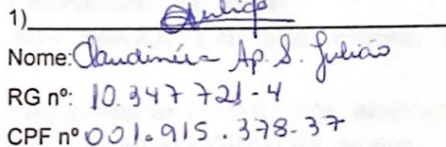 1)
Nome: Claudinéia Ap. S. Julião
RG nº: 10.347721-4
CPF nº 001.915.378-37